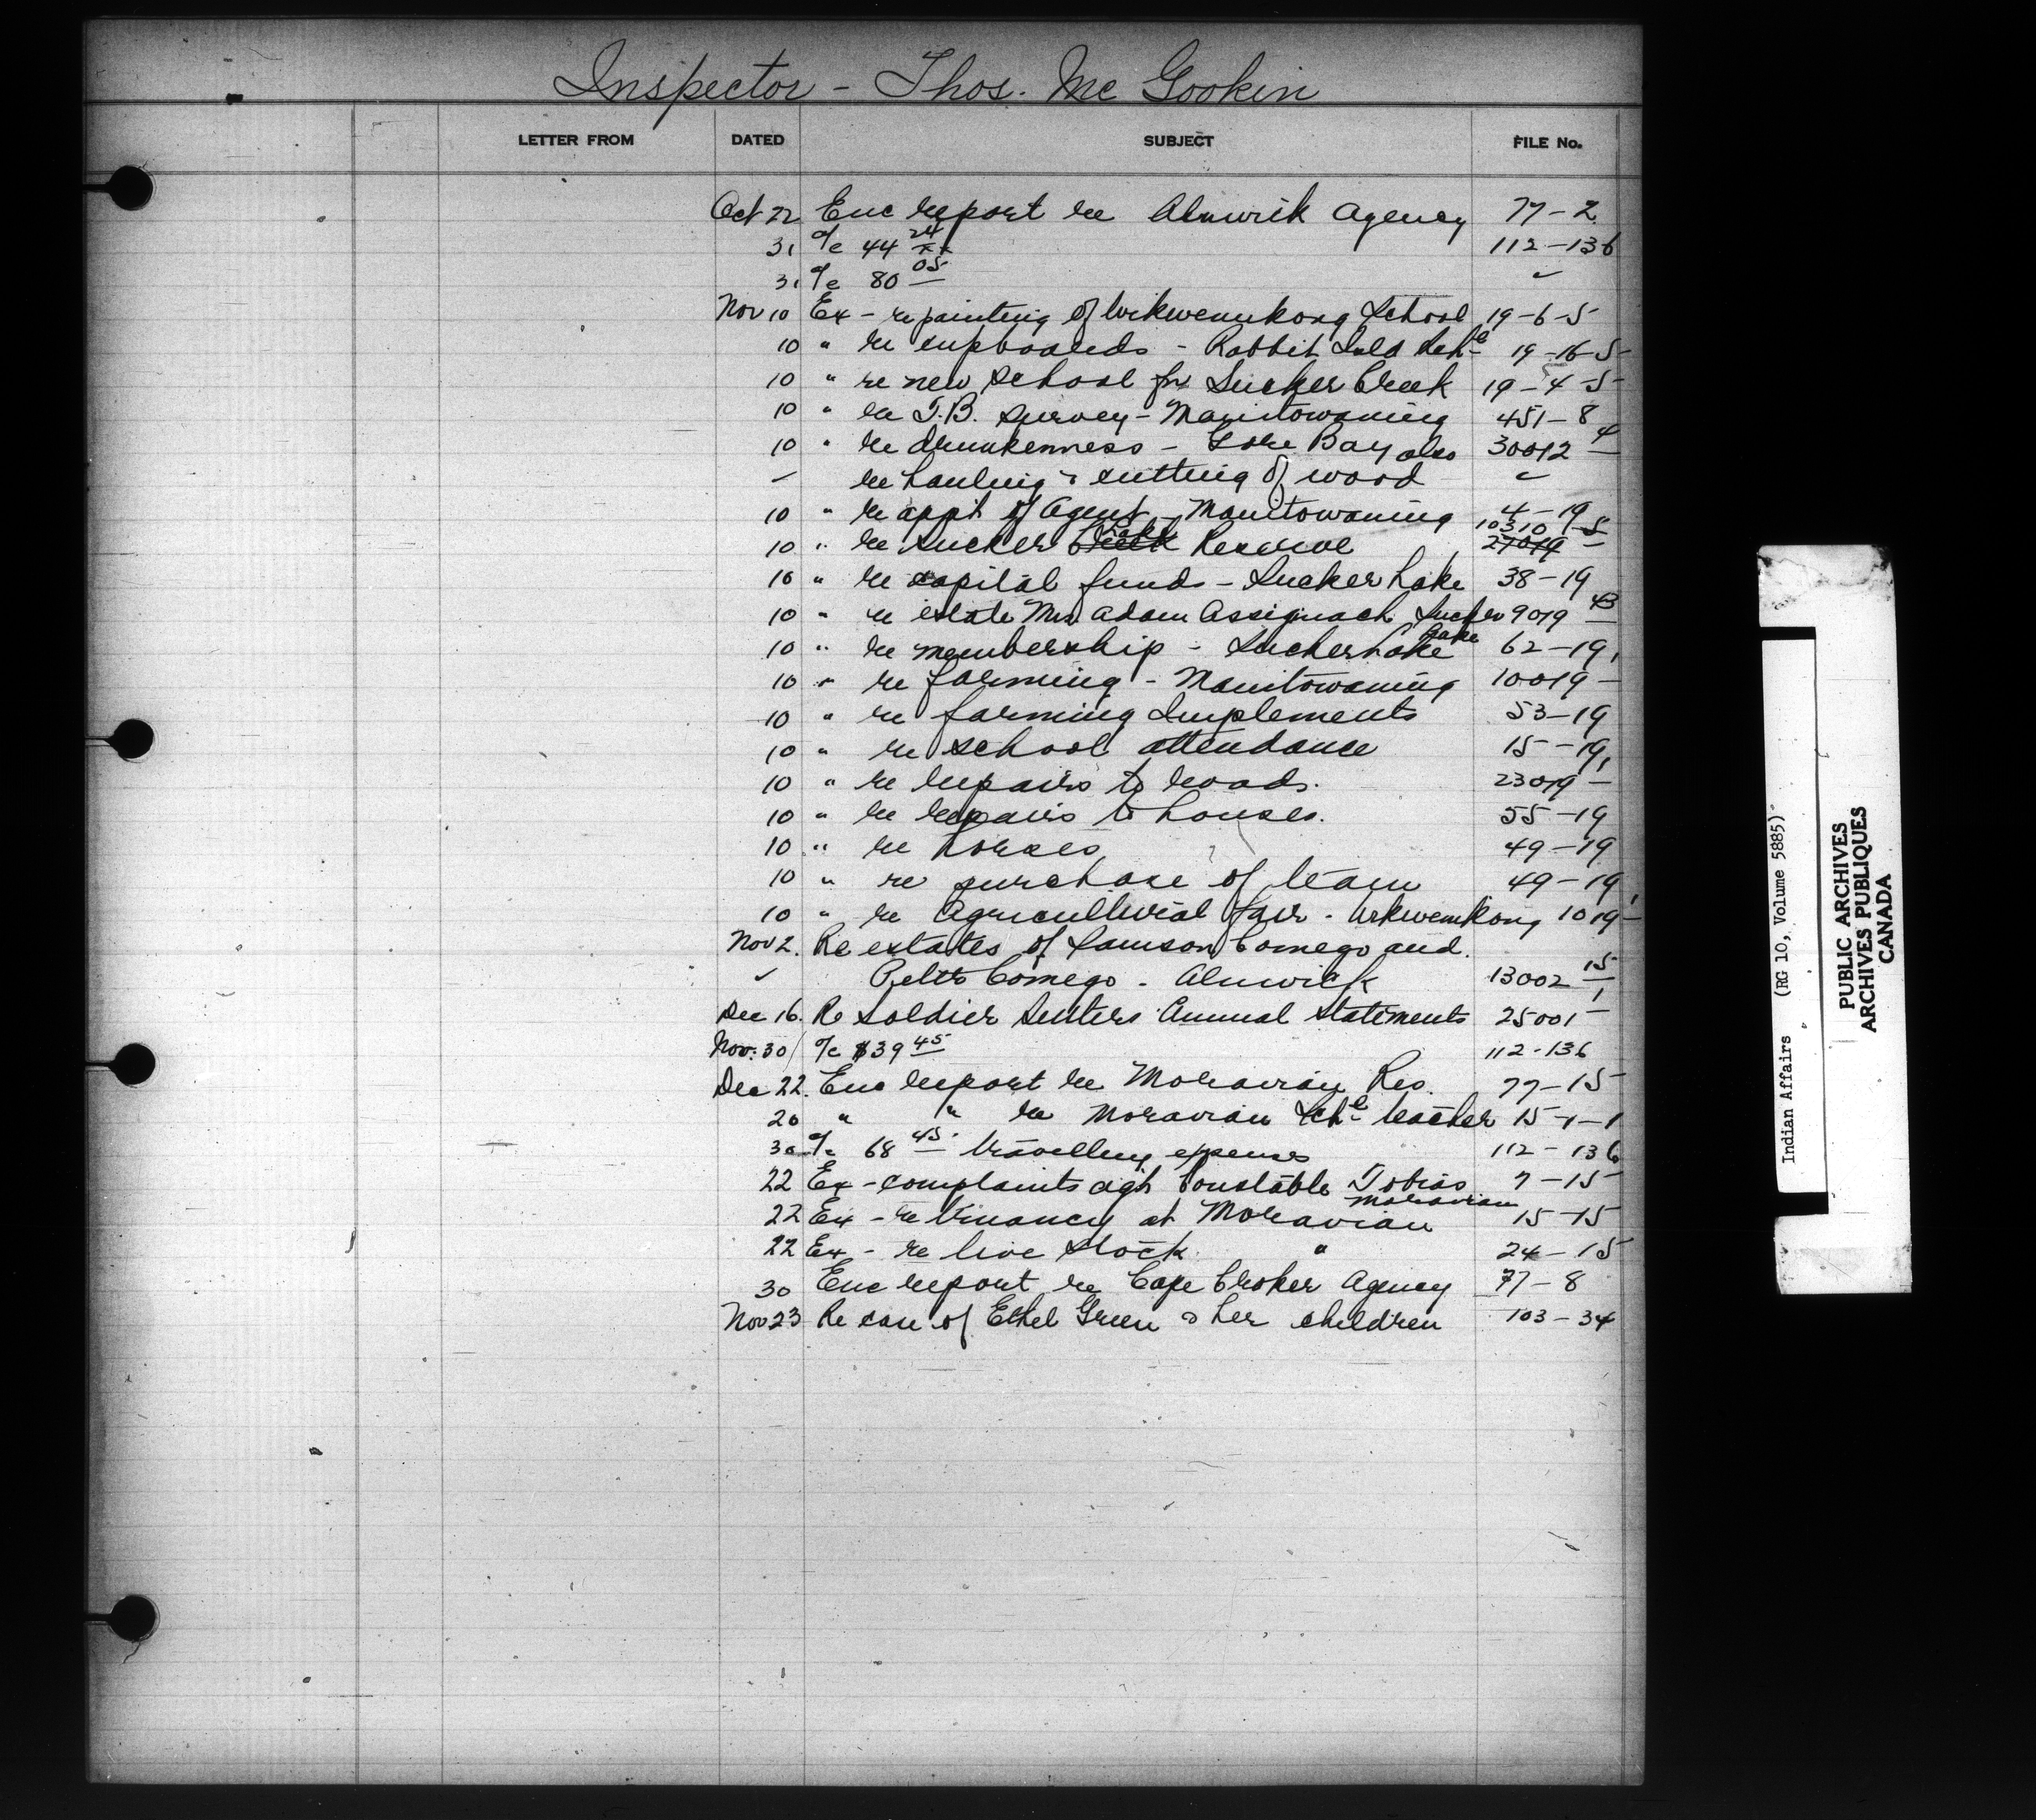 Inspector - Thos. Mc Gookin
LETTER FROM DATED SUBJECT FILE No.
Oct 22 Enc report re Alnwick Agency 77-2
31 a/c 44 24 112-136
31 a/c 80 05 "
Nov 10 Ex - re painting of Wikwemikong School 19-6-5
10 " re cupboards - Rabbit Isld Schl 19-16-5
10 " re new school for Sucker Creek 19-4-5
10 " re T.B. Survey - Manitowaning 451-8
10 " re drunkenness - Gore Bay also 30012-4
" re hauling & cutting of wood "
10 " re appt of Agent - Manitowaning 4-19
10 " re Sucker Creek Lake Reserve 27019 10310-5
10 " re capital funds - Sucker Lake 38-19
10 " re estate Mrs Adam Assiginack Sucker Lake 9019-43
10 " re membership - Sucker Lake 62-19
10 " re farming - Manitowaning 10019-1
10 " re farming Implements 53-19
10 " re school attendance 15-19
10 " re repairs to roads. 23019-1
10 " re repairs to houses. 55-19
10 " re horses 49-19
10 " re purchase of team 49-19
10 " re Agricultural Fair - Wikwemikong 1019-1
Nov 2. Re estates of Samson Comego and
" Comego - Alnwick 13002-15
Dec 16. Re Soldier Settlers Annual Statements 25001-1
Nov. 30 a/c $39 45 112-136
Dec 22. Enc report re Moravian Res. 77-15
20 " " re Moravian Schl teacher 15-1-1
30 a/c 68 45 travelling expenses 112-136
22 Ex - complaints agst Constable Tobias Moravian 7-15
22 Ex - re truancy at Moravian 15-15
22 Ex - re live stock " 24-15
30 Enc report re Cape Croker Agency 77-8
Nov 23 Re care of Ethel Green & her children 103-34
Indian Affairs (RG 10, Volume 5885)
PUBLIC ARCHIVES
ARCHIVES PUBLIQUES
CANADA